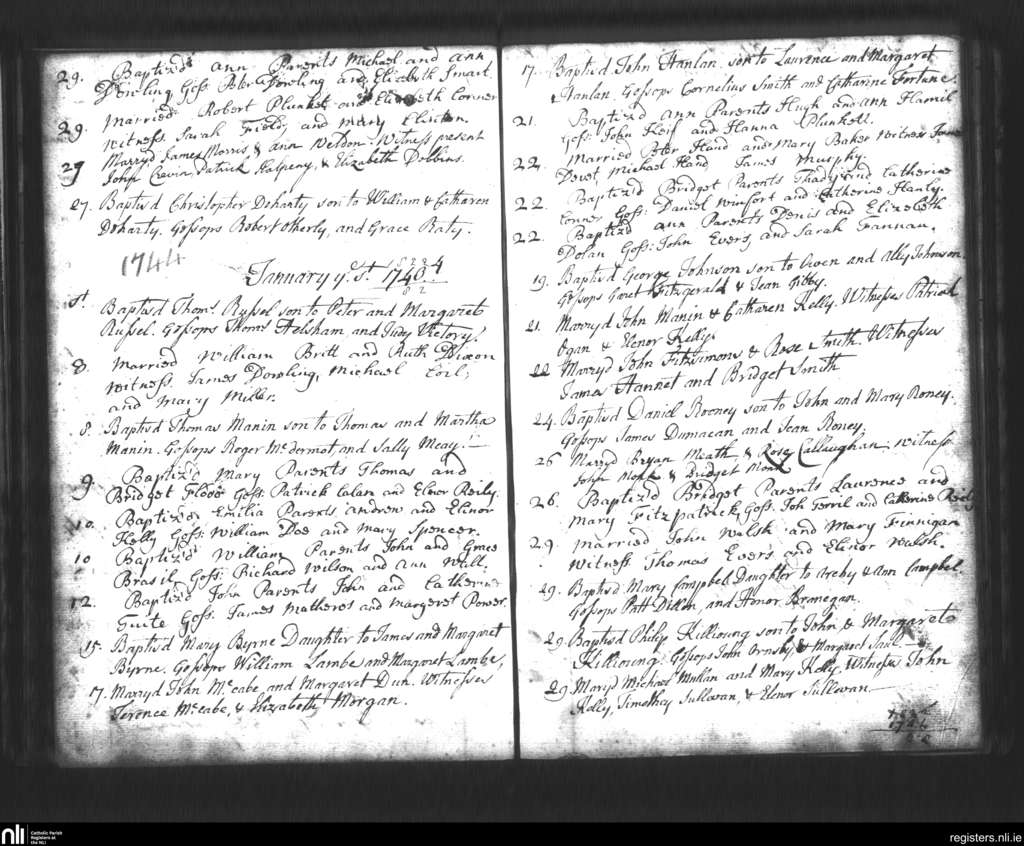 29. Baptiz'd Ann Parents Michael and Ann
Dowling Goss: Peter Dowling and Elizabeth Smart.
29. Married Robert Plunket and Elizabeth Conner
witness. Sarah Field, and Mary
27 Marryd James Morris & Ann Weldon. Witness present
John Cravin, Patrick Halpeny, & Elizabeth Dobbins.
27. Baptisd Christopher Doharty son to William & Catharen
Doharty. Gossops Robert and Grace Raty.
1744
January ye. 1st. 1740 4
1st. Baptisd Thoms. Russel son to Peter and Margaret
Russel. Gossops Thoms. Helsham and Judy Victory.
8. Married William Britt and Ruth Dixon
witness. James Dowling, Michael
and Mary Miller.
8. Baptisd Thomas Manin son to Thomas and Martha
Manin. Gossops Roger McDermot, and Sally Meay.
9. Baptiz'd Mary Parents Thomas and
Bridget Flood Goss: Patrick Calan and Elinor Reily.
10. Baptiz'd Emilia Parents Andrew and Elinor
Kelly Goss: William Doe and Mary Spencer.
10 Baptiz'd William Parents John and Grace
Brasil Goss: Richard Wilson and Ann Will.
12. Baptiz'd John Parents John and Catherine
Guite Goss: James Matheres and Margeret Power.
15. Baptisd Mary Byrne Daughter to James and Margaret
Byrne. Gossops William Lambe and Margaret Lambe,
17. Marryd John Mc.cabe, and Margaret Dun. Witnesses
Terence Mccabe, & Elizabeth Morgan.
17. Baptisd John Hanlan son to Laurence and Margaret
Hanlan. Gossops Cornelius Smith and Catharine Fortune.
21. Baptiz'd Ann Parents Hugh and Ann Hamil
Goss: John Keif and Hanna Plunkett.
22. Married Peter Hand and Mary Baker Witness
Devot, Michael Hand, James Murphy.
22. Baptiz'd Bridget Parents Thady and Catherine
Conner Goss: Daniel Winsort and Catherine Hanly.
22. Baptiz'd Ann Parents Denis and Elizabeth
Dolan Goss: John Evers, and Sarah Fannan.
19. Baptisd George Johnson son to Owen and Ally Johnson.
Gossops Garet Fitzgerald & Jean Gibby.
21. Marryd John Manin & Catharen Kelly. Witnesses Patrick
Egan & Elenor Kelly.
22 Marryd John Fitzsimons & Rose Smith. Witnesses
James Hannet and Bridget Smith
24. Baptisd Daniel Rooney son to John and Mary Roney.
Gossops James Dumacan and Jean Roney.
26 Marryd Bryan Meath & Rose Callaughan. witness.
John & Bridget
26. Baptiz'd Bridget Parents Laurence and
Mary Fitzpatrick, Goss: Joh Terril and Catherine Reily
29. Married John Walsh and Mary Finnigan
Witness: Thomas Evers and Elinor Walsh.
29. Baptisd Mary Campbel Daughter to Archy & Ann Campbel.
Gossops Patt Dillon, and Honor
29. Baptisd Philip Killioung son to John, & Margarete
Killioung. Gossops John Ornsby, & Margaret
29 Maryd Michael Mullan and Mary Kelly. Witness John
Kelly, Timothy Sullevan, & Elenor Sullevan
nli
Catholic Parish
Registers at
the NLI
registers.nli.ie